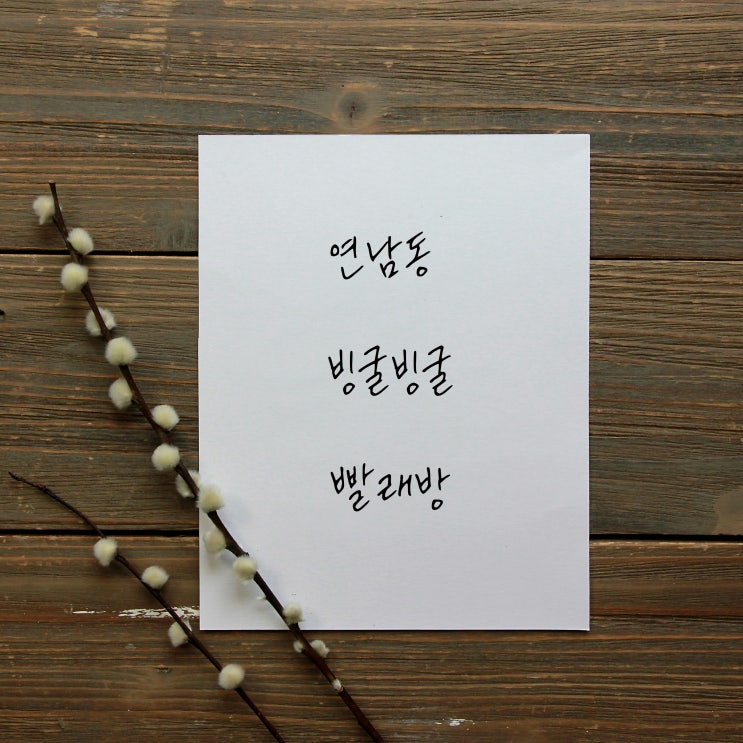 연남동
빙굴빙굴
빨래방